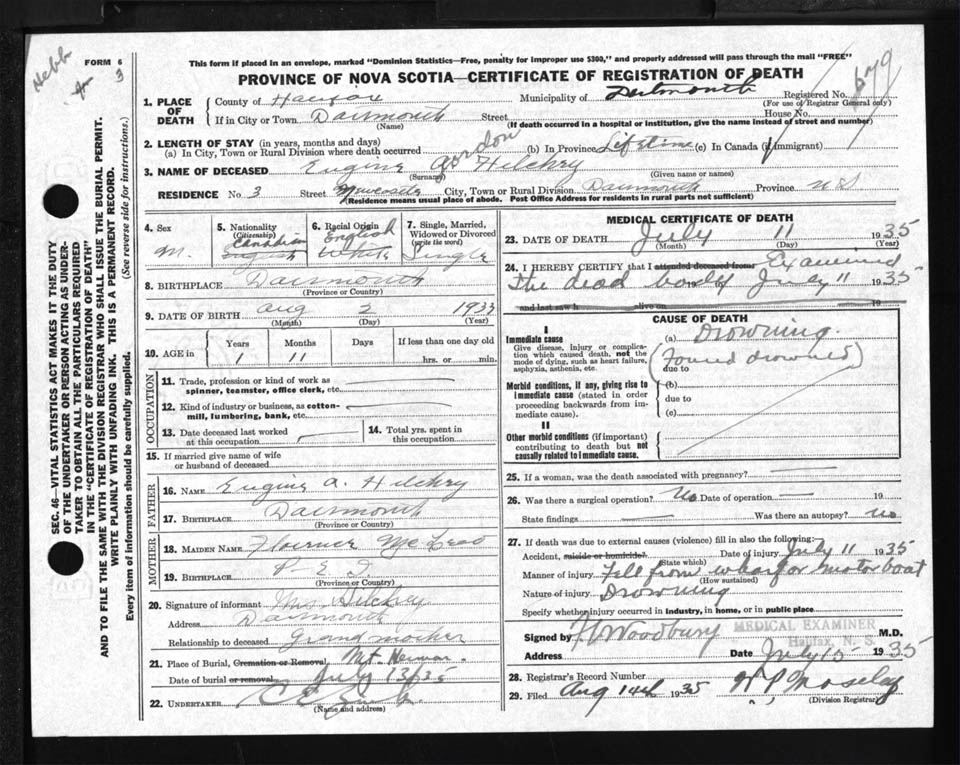 Hebb
3
FORM 6
This form if placed in an envelope, marked "Dominion Statistics—Free, penalty for improper use $300," and properly addressed will pass through the mail "FREE"
PROVINCE OF NOVA SCOTIA—CERTIFICATE OF REGISTRATION OF DEATH
679
1. PLACE OF DEATH
County of Halifax Municipality of Dartmouth Registered No.
(For use of Registrar General only)
If in City or Town Dartmouth Street House No.
(Name) (If death occurred in a hospital or institution, give the name instead of street and number)
2. LENGTH OF STAY (in years, months and days)
(a) In City, Town or Rural Division where death occurred (b) In Province Lifetime (c) In Canada (if immigrant)
3. NAME OF DECEASED Eugine Gordon Hilchry
(Surname) (Given name or names)
RESIDENCE No. 3 Street Newcastle City, Town or Rural Division Dartmouth Province N S
(Residence means usual place of abode. Post Office Address for residents in rural parts not sufficient)
4. Sex
M.
5. Nationality
(Citizenship)
Canadian
English
6. Racial Origin
English
White
7. Single, Married, Widowed or Divorced
(write the word)
Single
8. BIRTHPLACE Dartmouth
(Province or Country)
9. DATE OF BIRTH Aug 2 1933
(Month) (Day) (Year)
10. AGE in
Years Months Days If less than one day old
1 11 hrs. or min.
OCCUPATION
11. Trade, profession or kind of work as spinner, teamster, office clerk, etc.
12. Kind of industry or business, as cotton-mill, lumbering, bank, etc.
13. Date deceased last worked at this occupation
14. Total yrs. spent in this occupation
15. If married give name of wife or husband of deceased
FATHER
16. NAME Eugine A. Hilchry
17. BIRTHPLACE Dartmouth
(Province or Country)
MOTHER
18. MAIDEN NAME McLeod
19. BIRTHPLACE P-E I
(Province or Country)
20. Signature of informant Mrs Hilchey
Address Dartmouth
Relationship to deceased Grand mother
21. Place of Burial, Cremation or Removal Mt Herman
Date of burial or removal July 13/35
22. UNDERTAKER
(Name and address)
MEDICAL CERTIFICATE OF DEATH
23. DATE OF DEATH July 11 1935
(Month) (Day) (Year)
24. I HEREBY CERTIFY that I attended deceased from Examined
the dead body July 11 1935
and last saw h alive on 19
CAUSE OF DEATH
I
Immediate cause
Give disease, injury or complication which caused death, not the mode of dying, such as heart failure, asphyxia, asthenia, etc.
(a) Drowning
(Found drowned)
due to
Morbid conditions, if any, giving rise to immediate cause (stated in order proceeding backwards from immediate cause).
(b)
due to
(c)
II
Other morbid conditions (if important) contributing to death but not causally related to immediate cause.
25. If a woman, was the death associated with pregnancy?
26. Was there a surgical operation? No Date of operation 19
State findings Was there an autopsy? No
27. If death was due to external causes (violence) fill in also the following:
Accident, suicide or homicide? Date of injury July 11 1935
(State which)
Manner of injury Fell from wharf or motor boat
(How sustained)
Nature of injury Drowning
Specify whether injury occurred in industry, in home, or in public place
MEDICAL EXAMINER
Signed by Woodbury Halifax, N. S. M.D.
Address Date July 15 1935
28. Registrar's Record Number
29. Filed Aug 14th 1935 Moseley
(Division Registrar)
SEC. 46—VITAL STATISTICS ACT MAKES IT THE DUTY
OF THE UNDERTAKER OR PERSON ACTING AS UNDER-
TAKER TO OBTAIN ALL THE PARTICULARS REQUIRED
IN THE "CERTIFICATE OF REGISTRATION OF DEATH"
AND TO FILE THE SAME WITH THE DIVISION REGISTRAR WHO SHALL ISSUE THE BURIAL PERMIT.
WRITE PLAINLY WITH UNFADING INK. THIS IS A PERMANENT RECORD.
Every item of information should be carefully supplied. (See reverse side for instructions.)